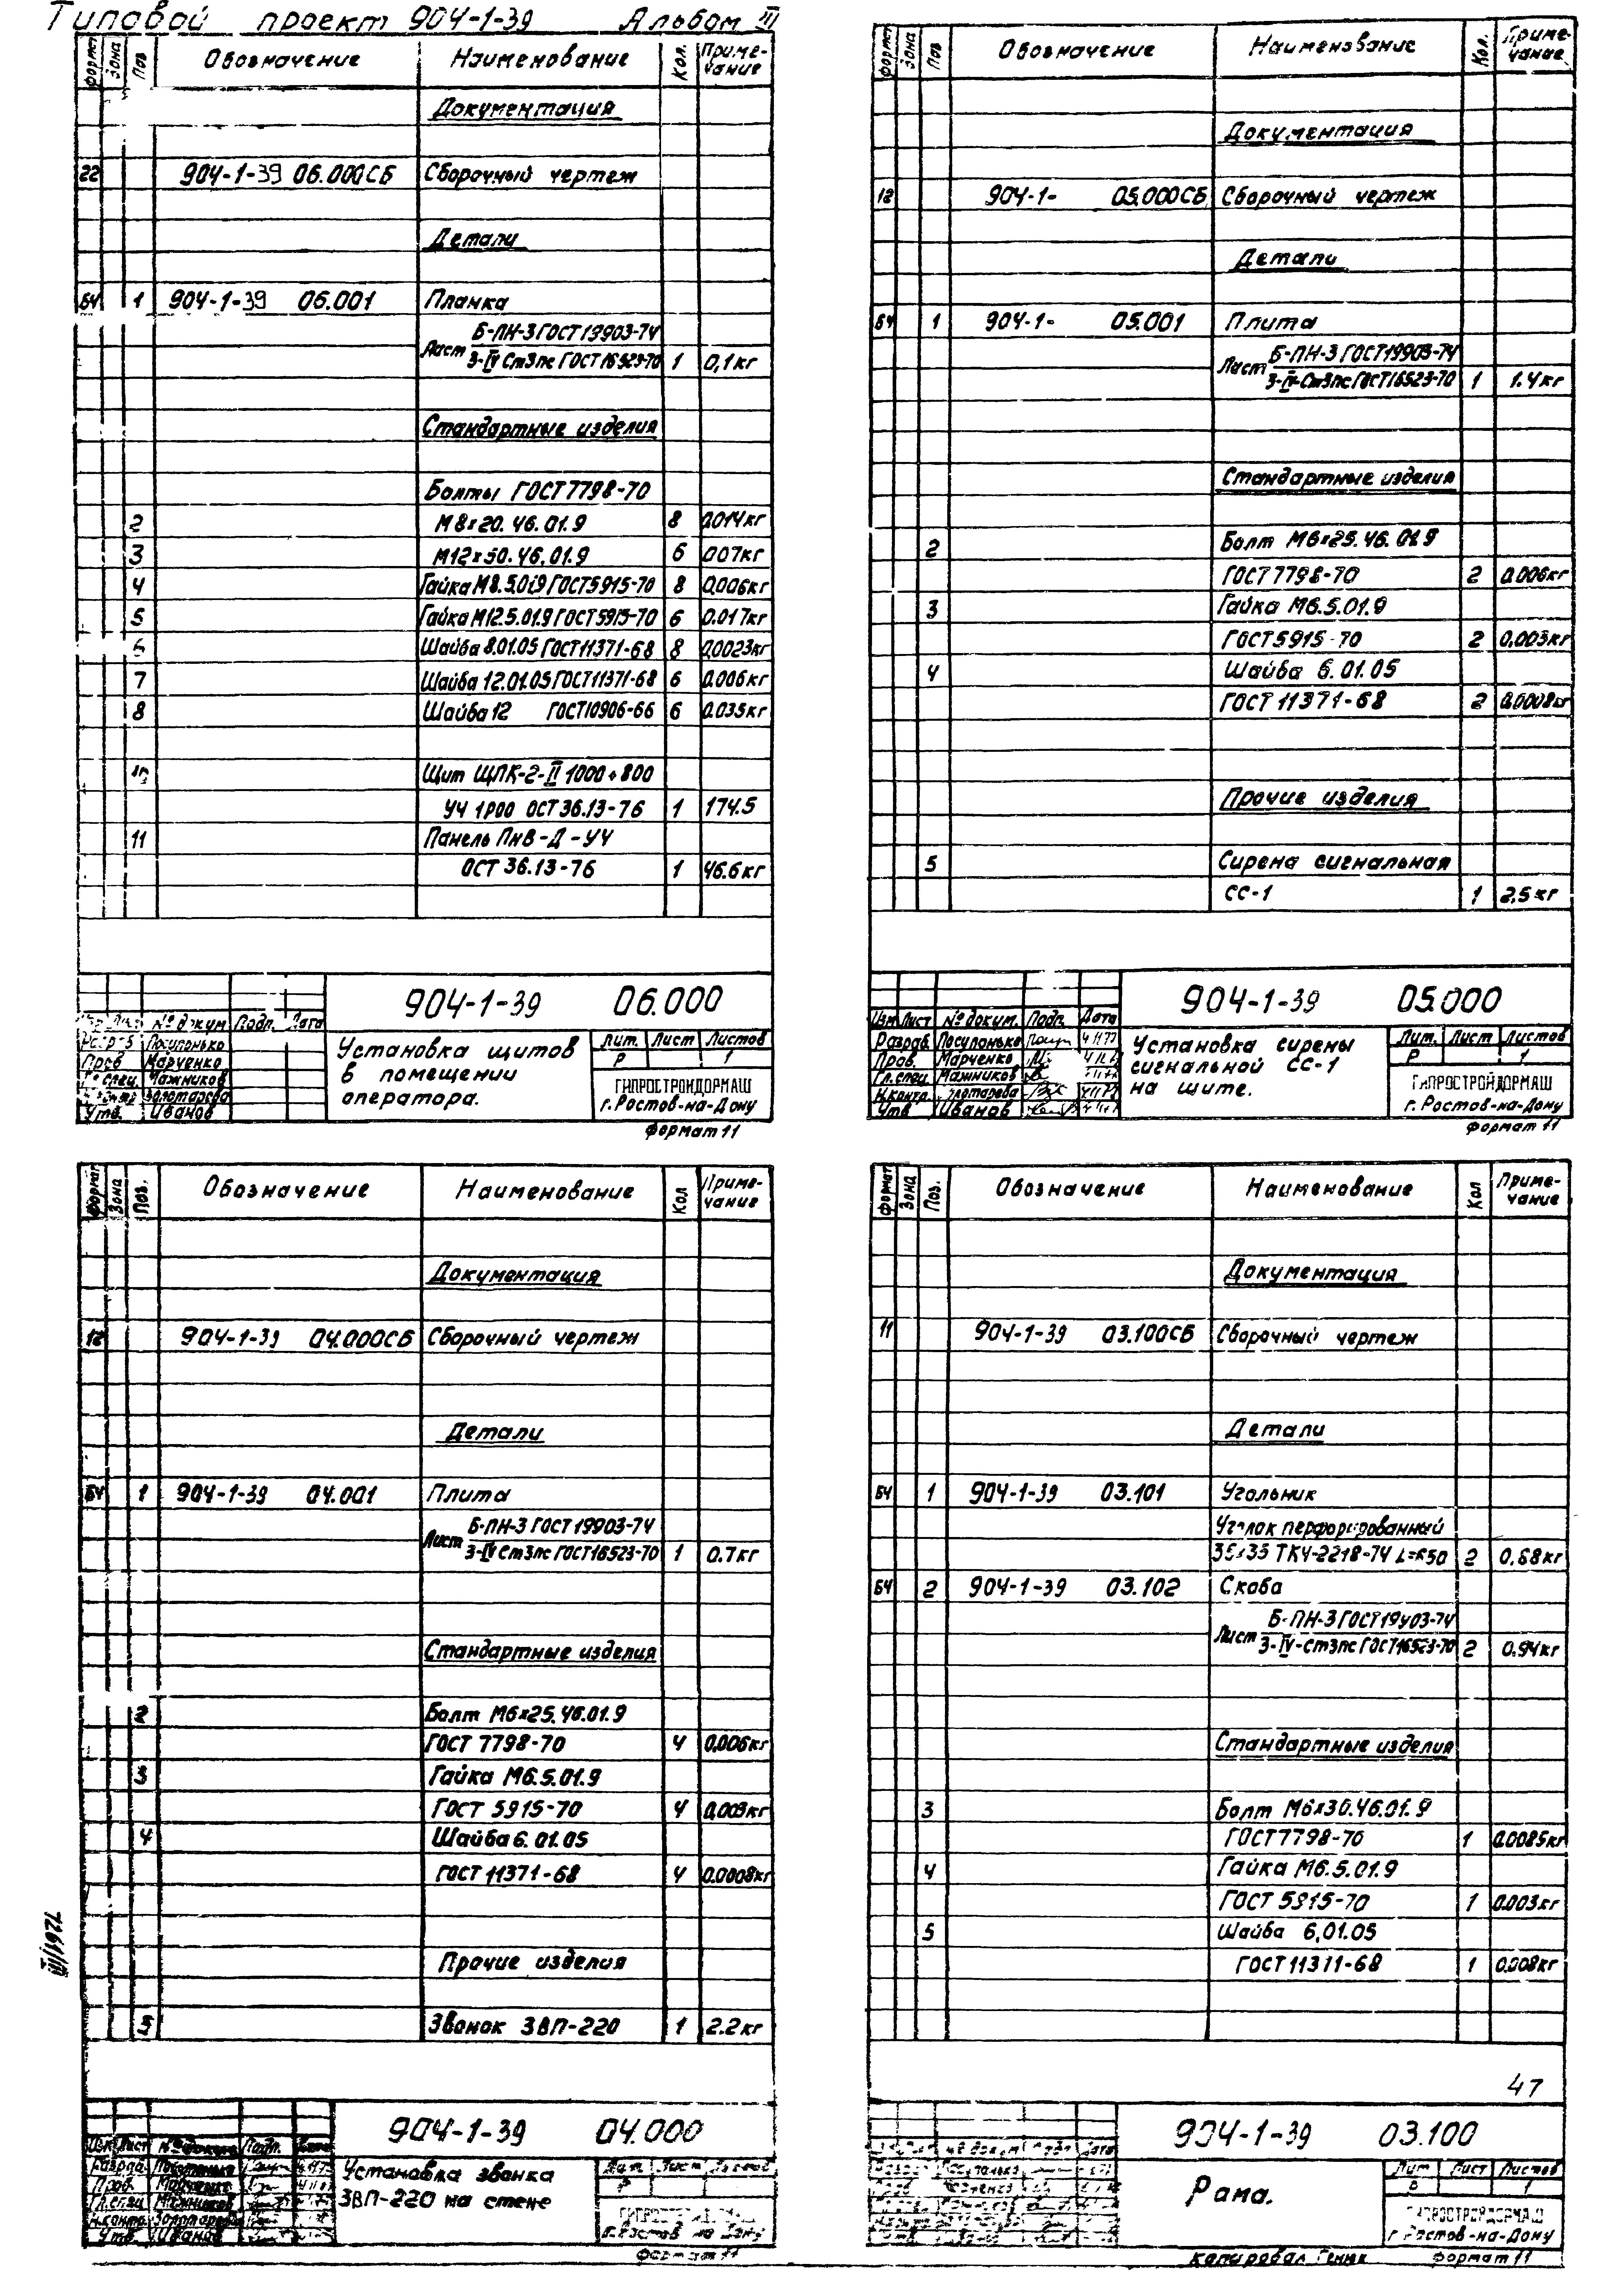 Типовой проект 904-1-39 Альбом III
Формат Зона Поз Обозначение Наименование Кол. Примечание
Документация
22 904-1-39 06.000СБ Сборочный чертеж
Детали
БЧ 1 904-1-39 06.001 Планка
Лист Б-ПН-3 ГОСТ 19903-74
3-IV Ст3пс ГОСТ 16523-70 1 0,1кг
Стандартные изделия
Болты ГОСТ 7798-70
2 М8х20.46.01.9 8 0.014кг
3 М12х50.46.01.9 6 0.07кг
4 Гайка М8.5.01.9 ГОСТ 5915-70 8 0.006кг
5 Гайка М12.5.01.9 ГОСТ 5915-70 6 0.017кг
6 Шайба 8.01.05 ГОСТ 11371-68 8 0.0023кг
7 Шайба 12.01.05 ГОСТ 11371-68 6 0.006кг
8 Шайба 12 ГОСТ 10906-66 6 0.035кг
10 Щит ЩПК-2-II 1000+800
УЧ 1Р00 ОСТ 36.13-76 1 174.5
11 Панель ПнВ-Д-УЧ
ОСТ 36.13-76 1 46.6кг
904-1-39 06.000
№ докум. Подп. Дата
Разраб Посупонько
Пров Марченко
Гл.спец. Мажников
Золотарева
Утв. Иванов
Установка щитов
в помещении
оператора.
Лит. Лист Листов
Р 1
ГИПРОСТРОЙДОРМАШ
г. Ростов-на-Дону
Формат 11
Формат Зона Поз Обозначение Наименование Кол. Примечание
Документация
12 904-1- 05.000СБ Сборочный чертеж
Детали
БЧ 1 904-1- 05.001 Плита
Лист Б-ПН-3 ГОСТ 19903-74
3-IV-Ст3пс ГОСТ 16523-70 1 1.4кг
Стандартные изделия
2 Болт М6х25.46.01.9
ГОСТ 7798-70 2 0.006кг
3 Гайка М6.5.01.9
ГОСТ 5915-70 2 0.003кг
4 Шайба 6.01.05
ГОСТ 11371-68 2 0.0008кг
Прочие изделия
5 Сирена сигнальная
СС-1 1 2,5кг
904-1-39 05.000
Изм Лист № докум. Подп. Дата
Разраб. Посупонько
Пров. Марченко
Гл.спец Мажников
Н.контр. Золотарева
Утв Иванов
Установка сирены
сигнальной СС-1
на щите.
Лит. Лист Листов
Р 1
ГИПРОСТРОЙДОРМАШ
г. Ростов-на-Дону
Формат 11
Формат Зона Поз. Обозначение Наименование Кол Примечание
Документация
12 904-1-39 04.000СБ Сборочный чертеж
Детали
БЧ 1 904-1-39 04.001 Плита
Лист Б-ПН-3 ГОСТ 19903-74
3-IV Ст3пс ГОСТ 16523-70 1 0.7кг
Стандартные изделия
2 Болт М6х25.46.01.9
ГОСТ 7798-70 4 0.006кг
3 Гайка М6.5.01.9
ГОСТ 5915-70 4 0.003кг
4 Шайба 6.01.05
ГОСТ 11371-68 4 0.0008кг
Прочие изделия
5 Звонок ЗВП-220 1 2.2кг
7261/III
904-1-39 04.000
Изм Лист № докум Подп. Дата
Разраб. Посупонько
Пров. Марченко
Гл.спец Мажников
Н.контр. Золотарева
Утв. Иванов
Установка звонка
ЗВП-220 на стене
Лит Лист Листов
Р
ГИПРОСТРОЙДОРМАШ
г. Ростов на Дону
формат 11
Формат Зона Поз. Обозначение Наименование Кол Примечание
Документация
11 904-1-39 03.100СБ Сборочный чертеж
Детали
БЧ 1 904-1-39 03.101 Угольник
Уголок перфорированный
35х35 ТКЧ-2218-74 2 0,68кг
БЧ 2 904-1-39 03.102 Скоба
Лист Б-ПН-3 ГОСТ 19903-74
3-IV-Ст3пс ГОСТ 16523-70 2 0.94кг
Стандартные изделия
3 Болт М6х30.46.01.9
ГОСТ 7798-70 1 0.0085кг
4 Гайка М6.5.01.9
ГОСТ 5915-70 1 0.003кг
5 Шайба 6,01.05
ГОСТ 11311-68 1 0.008кг
47
904-1-39 03.100
Рама.
Лит Лист Листов
1
ГИПРОСТРОЙДОРМАШ
г. Ростов-на-Дону
копировал
формат 11